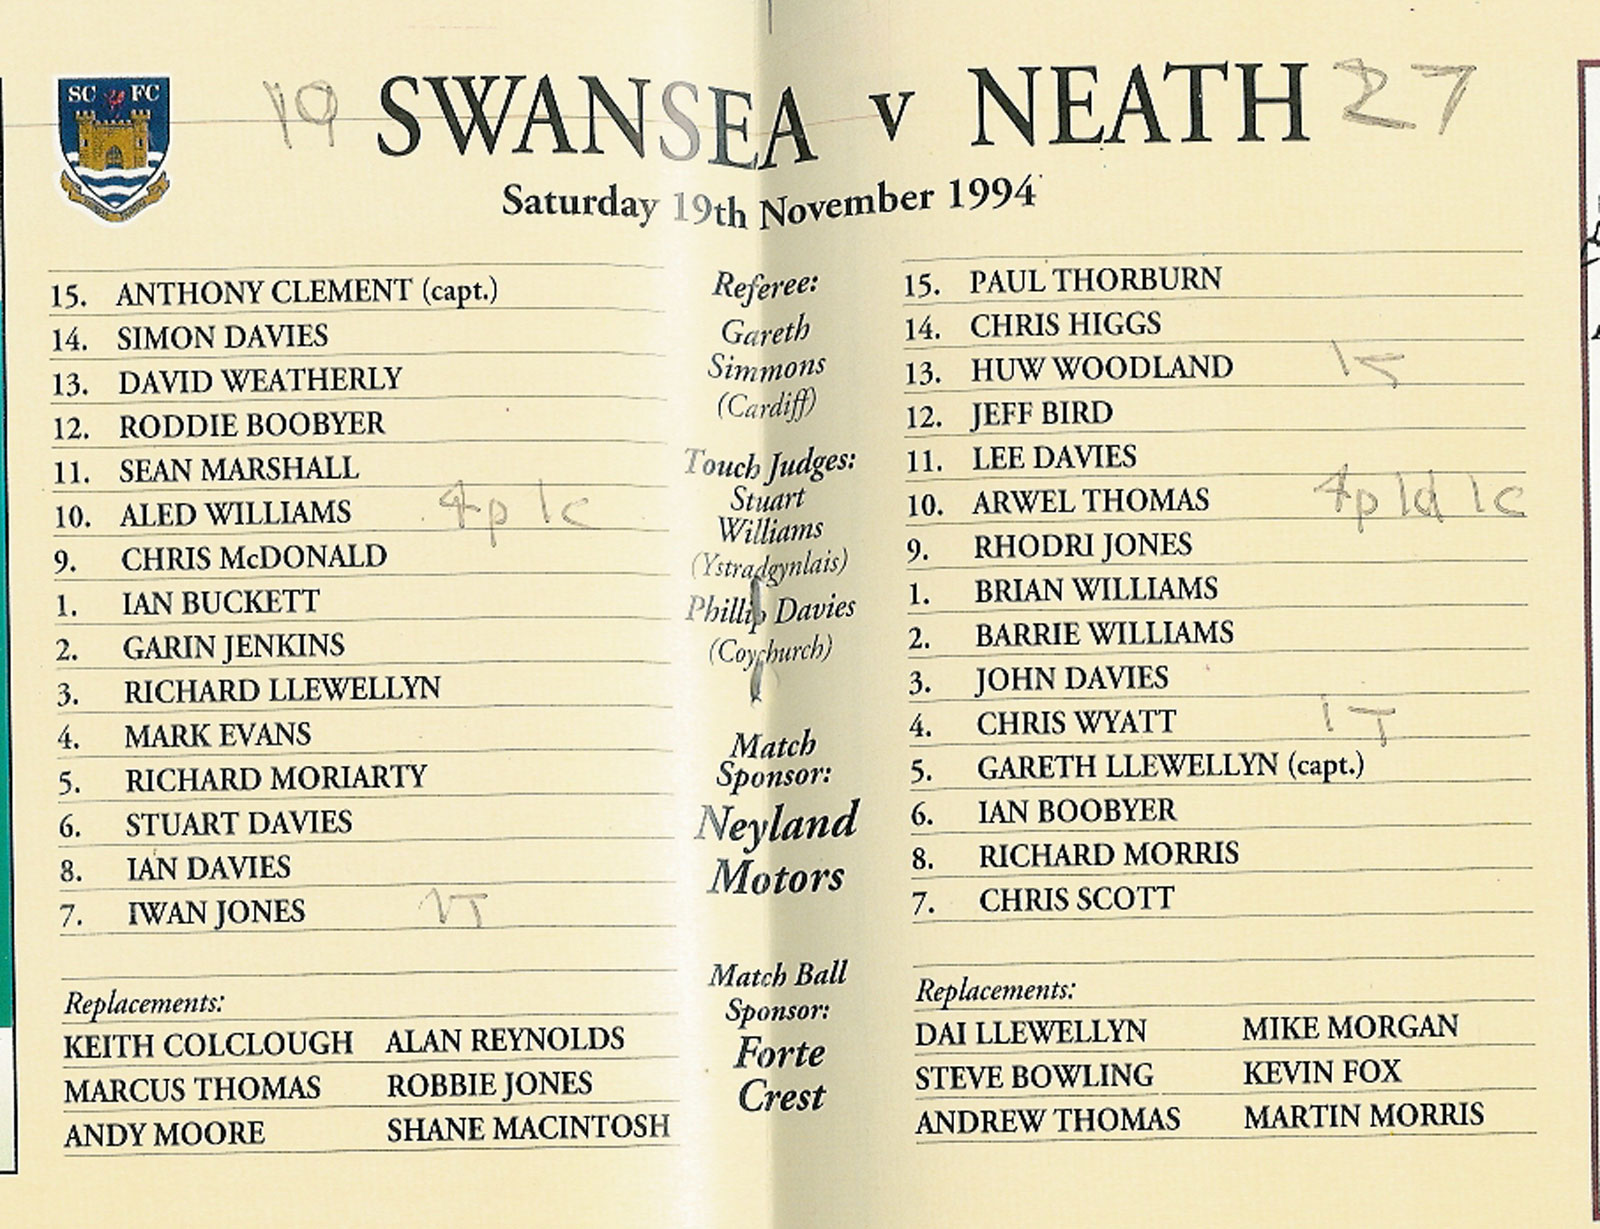 SC FC
19 SWANSEA v NEATH 27
Saturday 19th November 1994
15. ANTHONY CLEMENT (capt.)
14. SIMON DAVIES
13. DAVID WEATHERLY
12. RODDIE BOOBYER
11. SEAN MARSHALL
10. ALED WILLIAMS 4p 1c
9. CHRIS McDONALD
1. IAN BUCKETT
2. GARIN JENKINS
3. RICHARD LLEWELLYN
4. MARK EVANS
5. RICHARD MORIARTY
6. STUART DAVIES
8. IAN DAVIES
7. IWAN JONES 1T
Replacements:
KEITH COLCLOUGH ALAN REYNOLDS
MARCUS THOMAS ROBBIE JONES
ANDY MOORE SHANE MACINTOSH
Referee:
Gareth
Simmons
(Cardiff)
Touch Judges:
Stuart
Williams
(Ystradgynlais)
Phillip Davies
(Coychurch)
Match
Sponsor:
Neyland
Motors
Match Ball
Sponsor:
Forte
Crest
15. PAUL THORBURN
14. CHRIS HIGGS
13. HUW WOODLAND
12. JEFF BIRD
11. LEE DAVIES
10. ARWEL THOMAS 4p 1d 1c
9. RHODRI JONES
1. BRIAN WILLIAMS
2. BARRIE WILLIAMS
3. JOHN DAVIES
4. CHRIS WYATT 1T
5. GARETH LLEWELLYN (capt.)
6. IAN BOOBYER
8. RICHARD MORRIS
7. CHRIS SCOTT
Replacements:
DAI LLEWELLYN MIKE MORGAN
STEVE BOWLING KEVIN FOX
ANDREW THOMAS MARTIN MORRIS